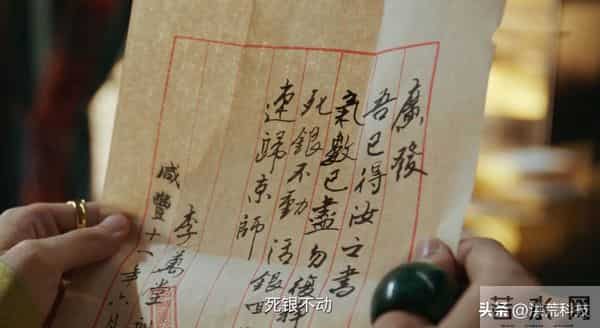 廣發
吾已得汝之書
氣數已盡勿
死銀不動活銀
速歸京師
李萬堂
咸豐十一年六
死银不动
头条 @洪荒科技
网